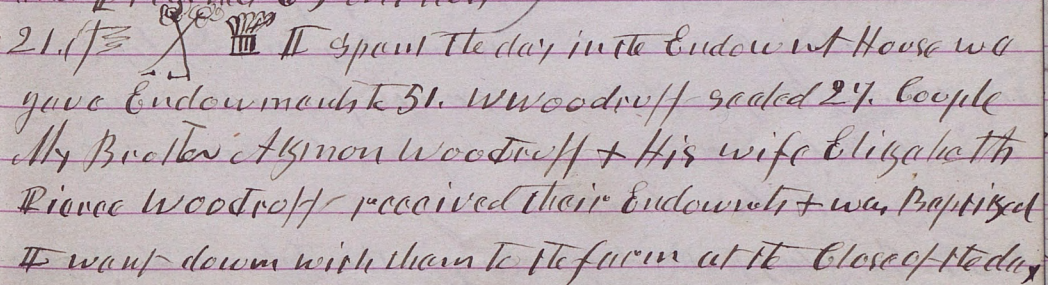 21. I spent the day in the Endowmt House we
gave Endowments to 51. W Woodruff sealed 27. Couple
My Brother Azmon Woodruff + His wife Elizabeth
Pierce Woodruff received their Endowmts + was Baptized
I went down with them to the farm at the Close of the day